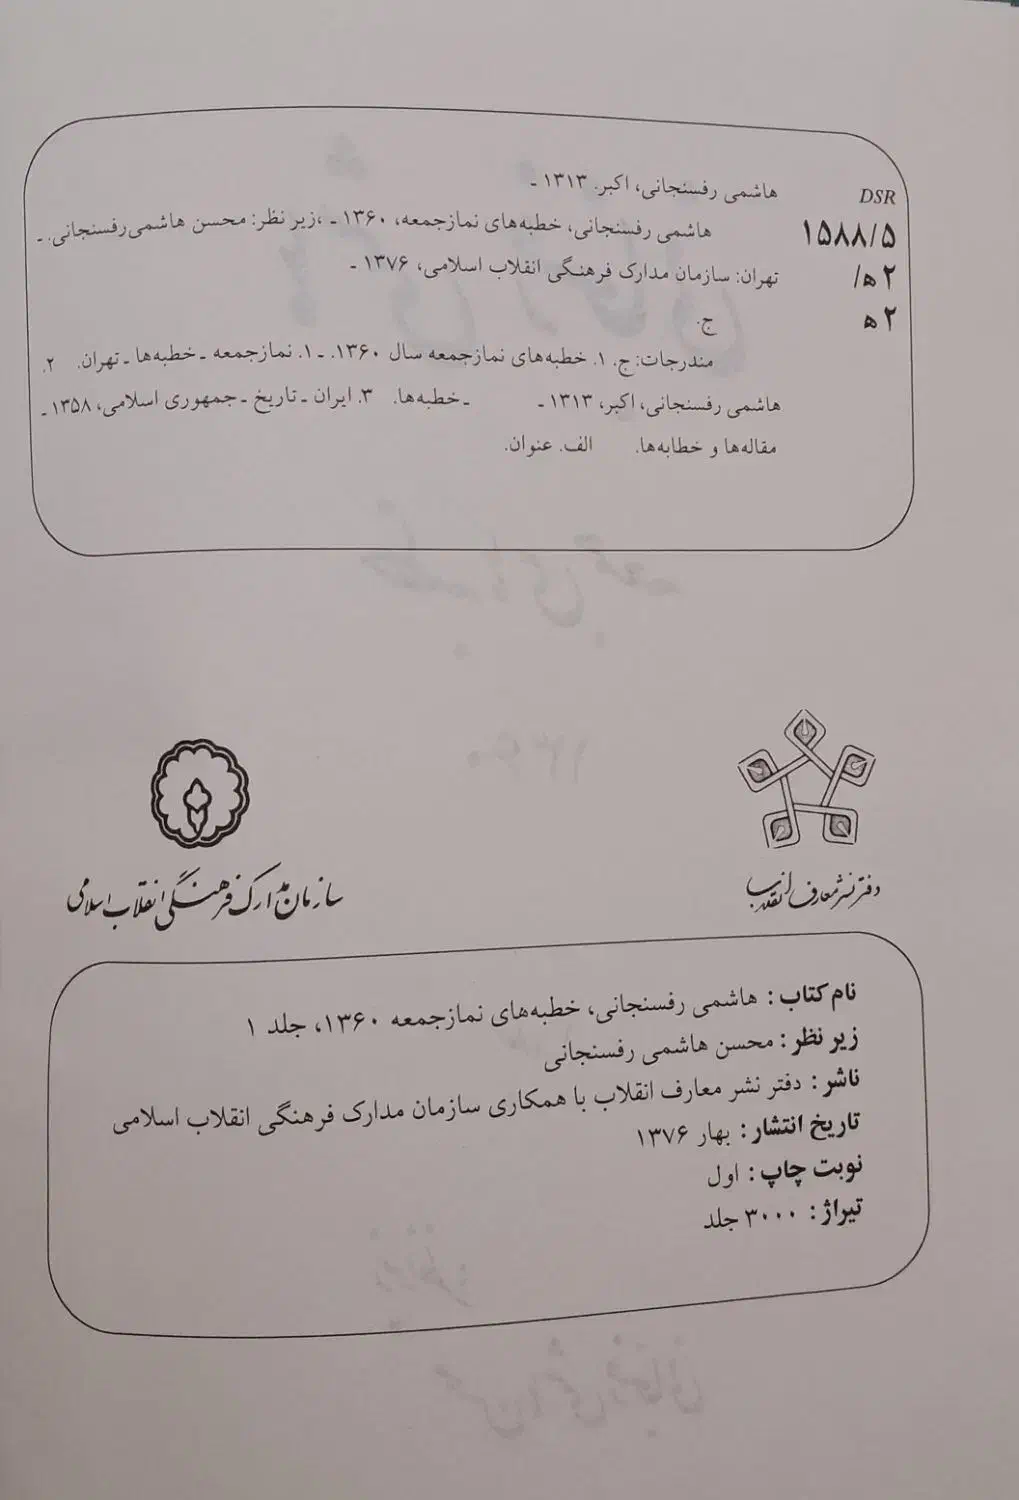 DSR
۱۵۸۸/۵
۲ه/
۲ه
هاشمی رفسنجانی، اکبر. ۱۳۱۳ ـ
هاشمی رفسنجانی، خطبه‌های نمازجمعه، ۱۳۶۰ ـ ،زیر نظر: محسن هاشمی‌رفسنجانی. ـ
تهران: سازمان مدارک فرهنگی انقلاب اسلامی، ۱۳۷۶ ـ
ج.
مندرجات: ج. ۱. خطبه‌های نمازجمعه سال ۱۳۶۰. ـ ۱. نمازجمعه ـ خطبه‌ها ـ تهران. ۲.
هاشمی رفسنجانی، اکبر، ۱۳۱۳ ـ ـ خطبه‌ها. ۳. ایران ـ تاریخ ـ جمهوری اسلامی، ۱۳۵۸ ـ
مقاله‌ها و خطابه‌ها. الف. عنوان.
دفتر نشر معارف انقلاب
سازمان مدارک فرهنگی انقلاب اسلامی
نام کتاب : هاشمی رفسنجانی، خطبه‌های نمازجمعه ۱۳۶۰، جلد ۱
زیر نظر : محسن هاشمی رفسنجانی
ناشر : دفتر نشر معارف انقلاب با همکاری سازمان مدارک فرهنگی انقلاب اسلامی
تاریخ انتشار : بهار ۱۳۷۶
نوبت چاپ : اول
تیراژ : ۳۰۰۰ جلد